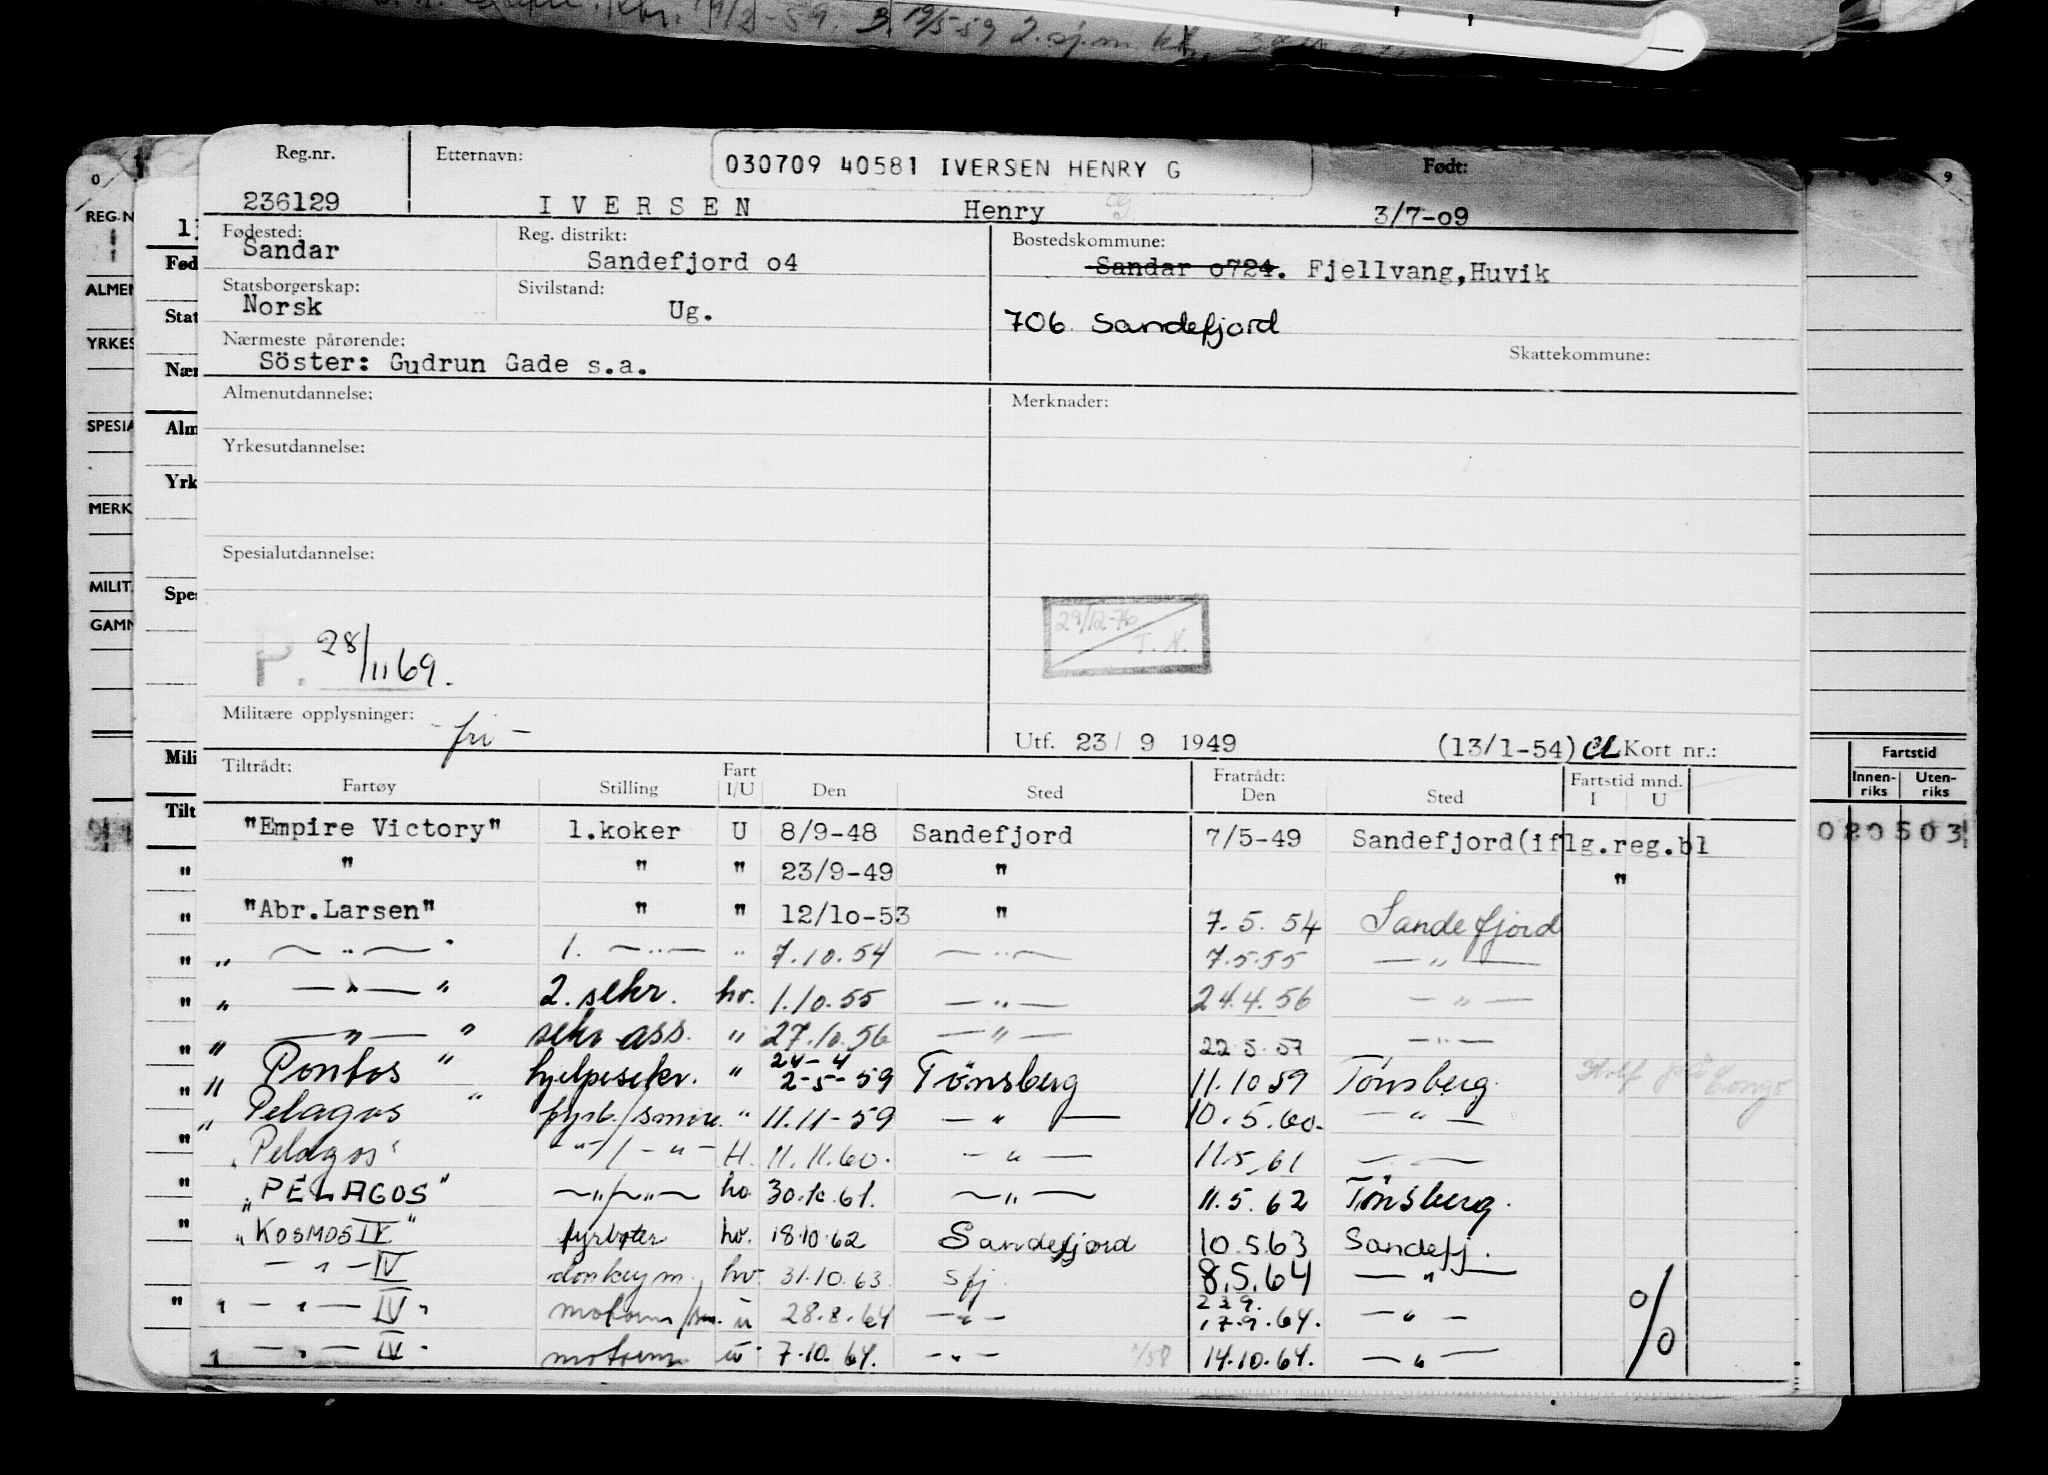 19/5-59 2.
Reg.nr. Etternavn: 030709 40581 IVERSEN HENRY G Født:
236129 I V E R S E N Henry 3/7-o9
Fødested: Sandar Reg. distrikt: Sandefjord o4 Bostedskommune: Sandar o724. Fjellvang,Huvik
Statsborgerskap: Norsk Sivilstand: Ug. 706 Sandefjord
Nærmeste pårørende: Skattekommune:
Söster: Gudrun Gade s.a.
Almenutdannelse: Merknader:
Yrkesutdannelse:
Spesialutdannelse:
29/12-76 T. N.
P. 28/11 69.
Militære opplysninger: - fri -
Utf. 23/ 9 1949 (13/1-54) Kort nr.:
Tiltrådt: Fart Fratrådt: Fartstid mnd.
Fartøy Stilling I/U Den Sted Den Sted I U
"Empire Victory" 1.koker U 8/9-48 Sandefjord 7/5-49 Sandefjord(iflg.reg.bl
" " " 23/9-49 " "
"Abr.Larsen" " " 12/1o-53 " 7.5.54 Sandefjord
" — " — " 1. — " — " 7.10.54 — " — 7.5.55 — " —
" — " — " 2. sekr. hv. 1.10.55 — " — 24.4.56 — " —
" — " — " sekr ass. " 27.10.56 — " — 22.5.57 — " —
" Pontos " hjelpesekr. " 24-4 2-5-59 Tönsberg 11.10 59 Tönsberg.
" Pelagos " fyrb./smøre. " 11.11-59 — " — 10.5.60. — " —
"Pelagos" — " — / — " — H. 11.11.60. — " — 11.5.61 — " —
"PELAGOS" — " — / — " — hv. 30.10.61. — " — 11.5.62 Tönsberg.
"KOSMOS IV" fyrbøter hv. 18.10.62 Sandefjord 10.5.63 Sandefj.
— " — IV donkeym. hv. 31.10.63. Sfj. 8.5.64 — " —
" — " — IV " motorm/sm. u 28.8.64 — " — 17.9.64. — " —
" — " — IV " motorm u 7.10.64. — " — 14.10.64. — " —
%
REG.N
ALMEN
YRKES
SPESIA
MERK
MILIT.
GAMN
Fød
Stat
Nær
Alm
Yrk
Spes
Mili
Tilt
Fartstid
Innen-riks Uten-riks
0 2 0 5 0 3